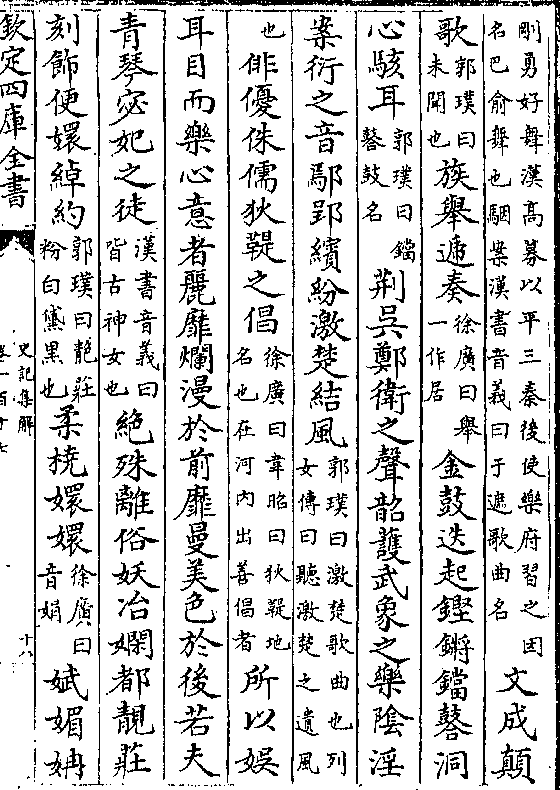 剛勇好舞漢高募以平三秦後使樂府習之因
名巴俞舞也駰案漢書音義曰于遮歌曲名
文成顛
歌
郭璞曰
未聞也
族舉遞奏
徐廣曰舉
一作居
金鼓迭起鏗鏘鐺鼛洞
心駭耳
郭璞曰鐺
鼛鼓名
荆吳鄭衛之聲韶護武象之樂陰淫
案衍之音鄢郢繽紛激楚結風
郭璞曰激楚歌曲也列
女傳曰聽激楚之遺風
也
俳優侏儒狄鞮之倡
徐廣曰韋昭曰狄鞮地
名也在河内出善倡者
所以娱
耳目而樂心意者麗靡爛漫於前靡曼美色於後若夫
青琴宓妃之徒
漢書音義曰
皆古神女也
絶殊離俗妖冶嫻都靚莊
刻飾便嬛綽約
郭璞曰靚莊
粉白黛黑也
柔橈嬛嬛
徐廣曰
音娟
娬媚姌
欽定四庫全書
史記集解
卷一百十七
十八